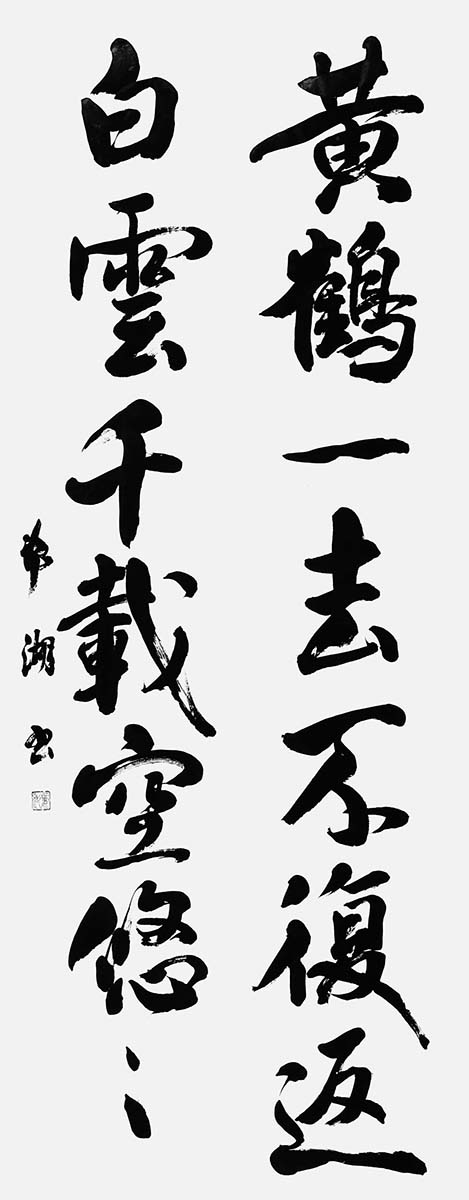 黄鶴一去不復返
白雲千載空悠〻
湖書